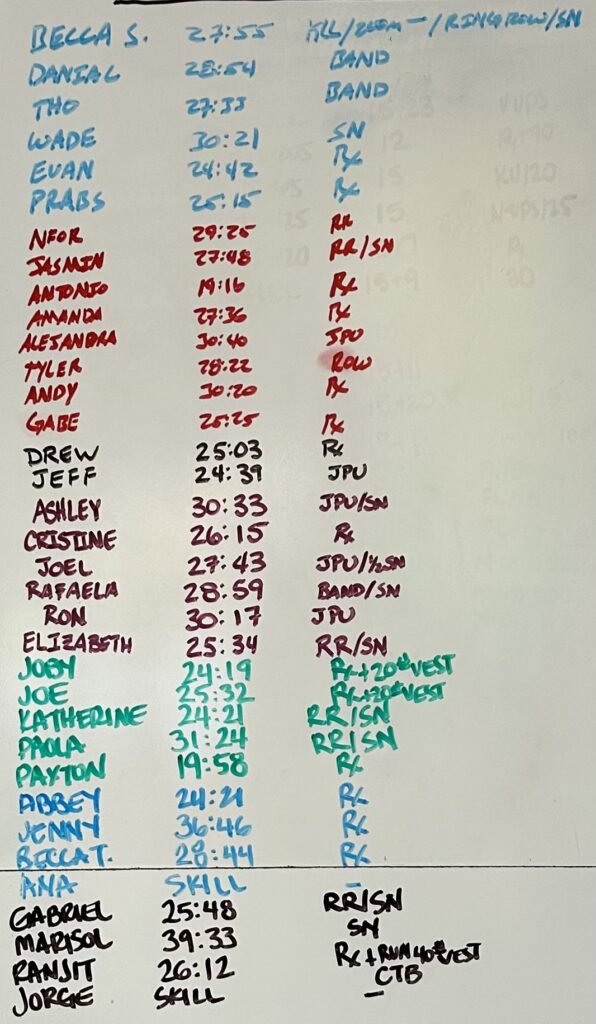 BECCA S. 27:55 KLL/200m-/RING ROW/SN
DANIAL 28:54 BAND
THO 27:33 BAND
WADE 30:21 SN
EVAN 24:42 Rx
PRABS 25:15 Rx
NFOR 29:25 RR
JASMIN 27:48 RR/SN
ANTONIO 19:16 Rx
AMANDA 27:36 Rx
ALEJANDRA 30:40 JPU
TYLER 28:22 ROW
ANDY 30:20 Rx
GABE 25:25 Rx
DREW 25:03 Rx
JEFF 24:39 JPU
ASHLEY 30:33 JPU/SN
CRISTINE 26:15 Rx
JOEL 27:43 JPU/½SN
RAFAELA 28:59 BAND/SN
RON 30:17 JPU
ELIZABETH 25:34 RR/SN
JOBY 24:19 Rx+20# VEST
JOE 25:32 Rx+20# VEST
KATHERINE 24:21 RR/SN
PAOLA 31:24 RR/SN
PAYTON 19:58 Rx
ABBEY 24:21 Rx
JENNY 36:46 Rx
BECCA T. 28:44 Rx
ANA SKILL –
GABRIEL 25:48 RR/SN
MARISOL 39:33 SN
RANJIT 26:12 Rx+RUN 40# VEST
CTB
JORGE SKILL –